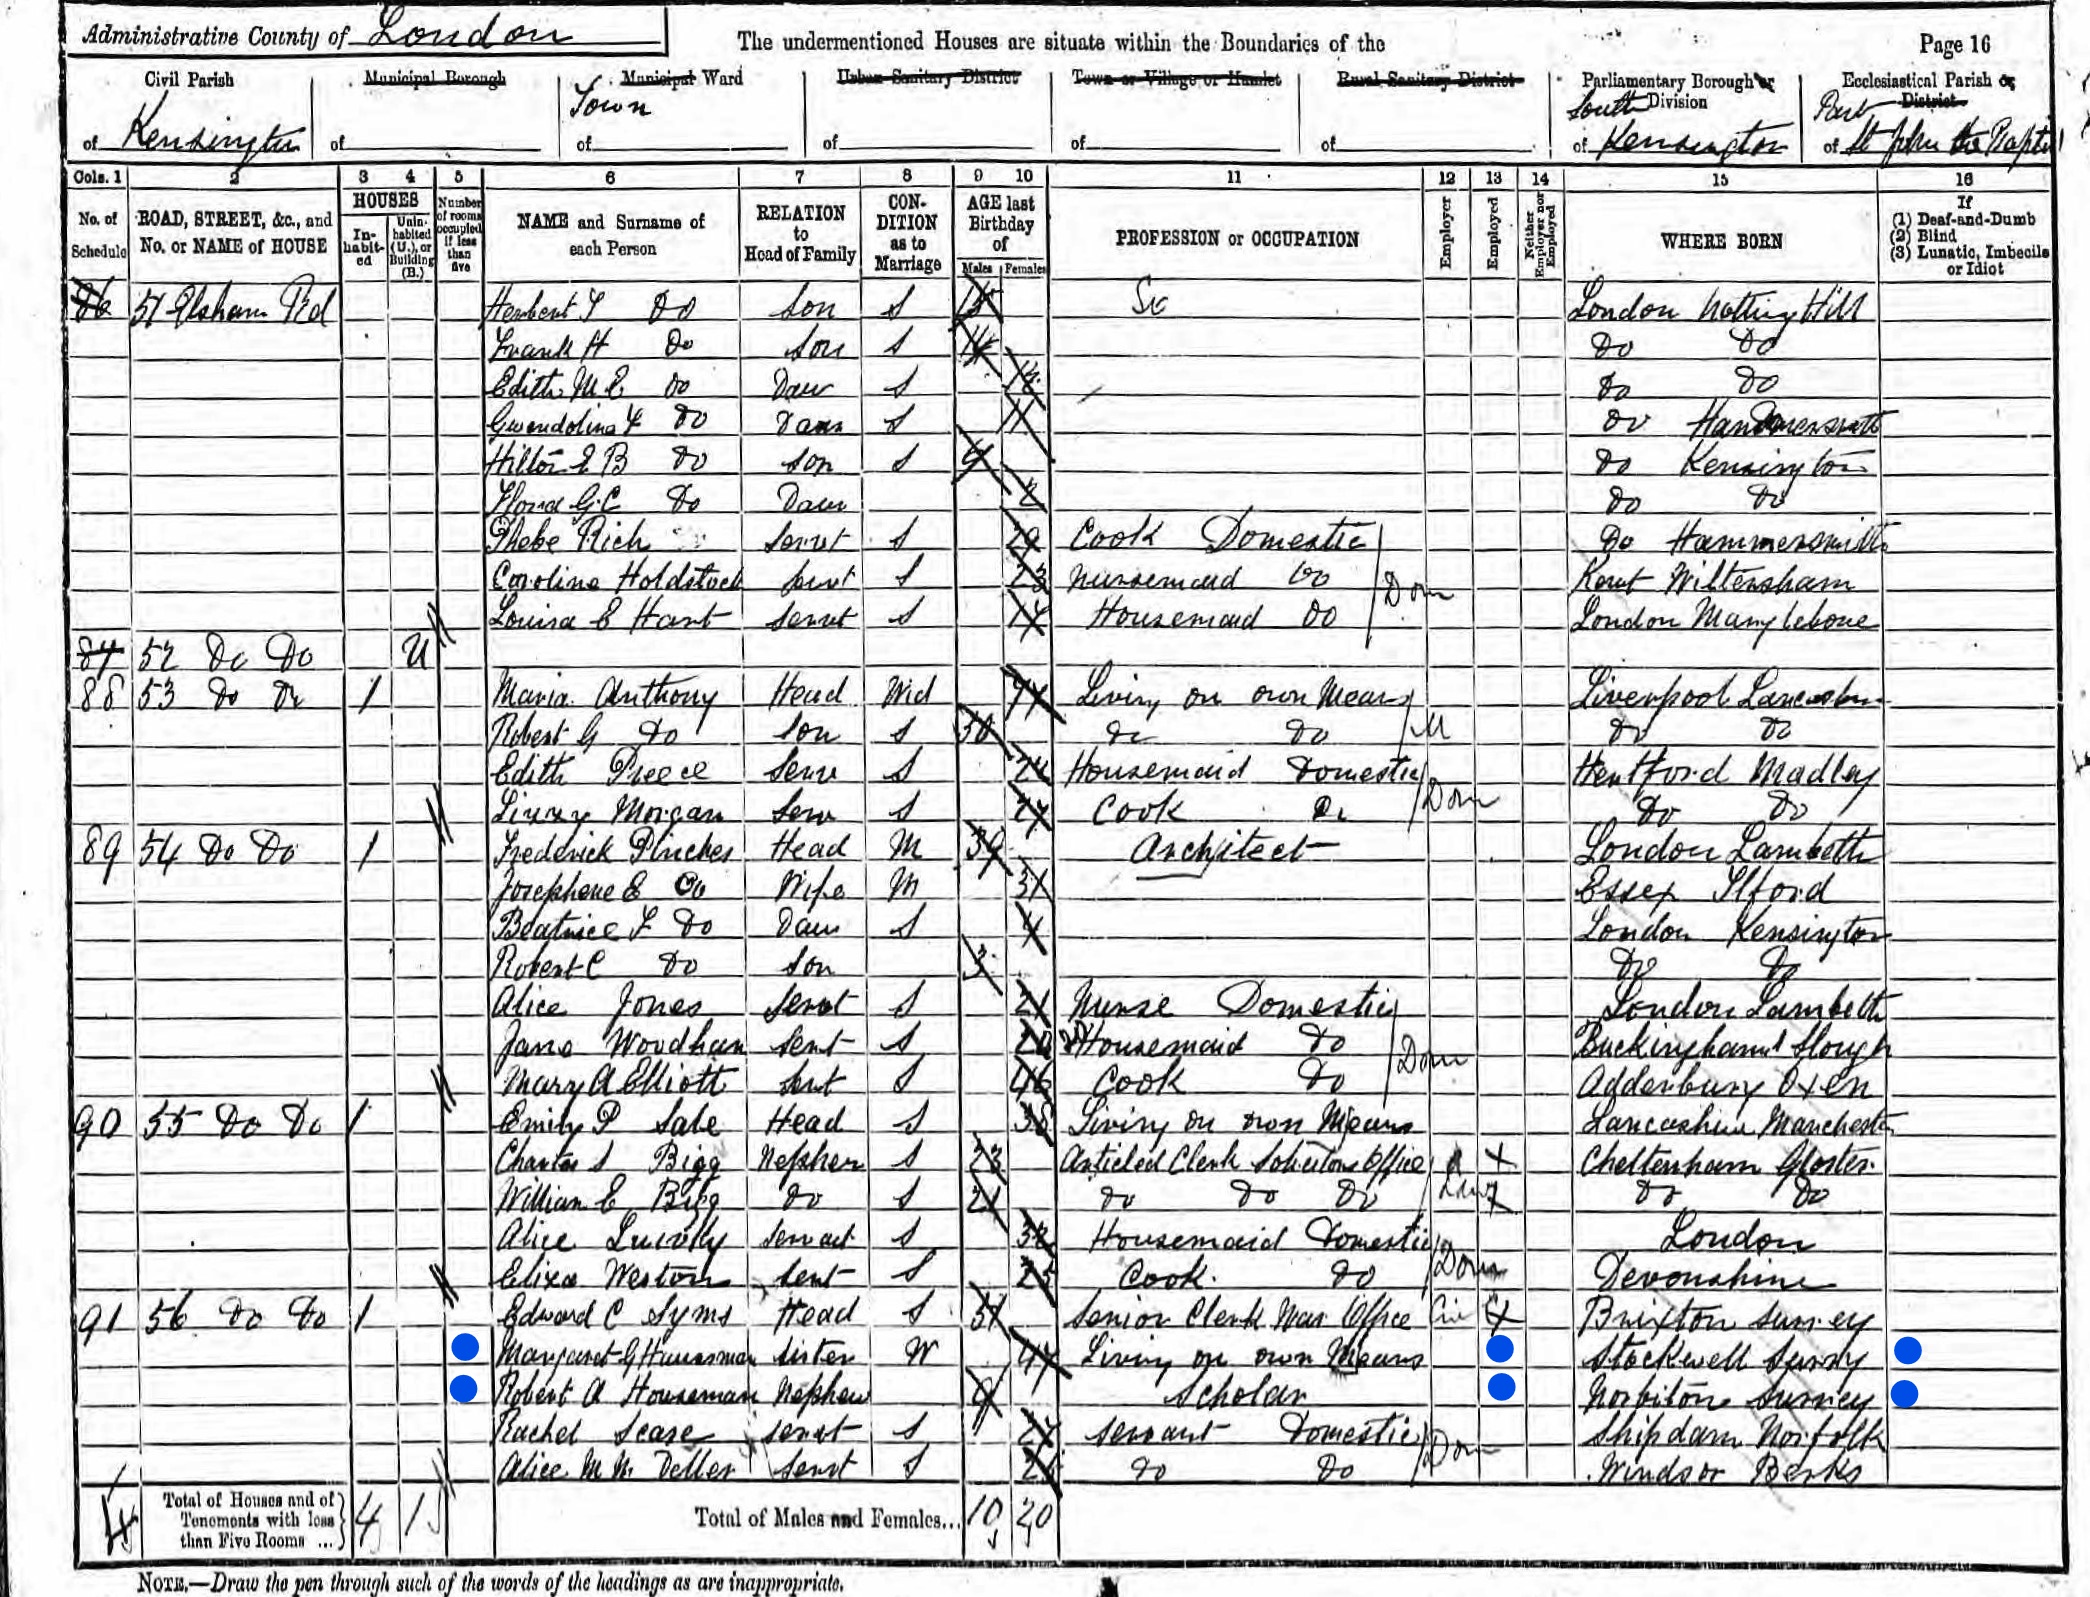 Administrative County of London
The undermentioned Houses are situate within the Boundaries of the
Page 16
Civil Parish of Kensington
Municipal Borough of
Municipal Ward Town of
Urban Sanitary District of
Town or Village or Hamlet of
Rural Sanitary District of
Parliamentary Borough or Division South of Kensington
Ecclesiastical Parish or District Part of St John the Baptist
Cols. 1 2 3 4 5 6 7 8 9 10 11 12 13 14 15 16
No. of Schedule
ROAD, STREET, &c., and No. or NAME of HOUSE
HOUSES
Inhabited
Uninhabited (U.), or Building (B.)
Number of rooms occupied if less than five
NAME and Surname of each Person
RELATION to Head of Family
CONDITION as to Marriage
AGE last Birthday of
Males Females
PROFESSION or OCCUPATION
Employer
Employed
Neither Employer nor Employed
WHERE BORN
If (1) Deaf-and-Dumb (2) Blind (3) Lunatic, Imbecile or Idiot
86 51 Elsham Rd Herbert F Do Son S 15 Sc London Notting Hill
Frank H Do Son S 14 Do Do
Edith M E Do Daur S 12 Do Do
Gwendolina F Do Daur S 11 Do Hammersmith
Hilton E B Do Son S 9 Do Kensington
Flora G C Do Daur 2 Do Do
Phebe Rich Servt S 29 Cook Domestic Do Hammersmith
Caroline Holdstock Servt S 23 Nursemaid Do Dom Kent Wiltersham
Louisa E Hart Servt S 14 Housemaid Do London Marylebone
87 52 Do Do U
88 53 Do Do 1 Maria Anthony Head Wid Living on own Means Liverpool Lancashire
Robert G Do Son S 30 Do Do M Do Do
Edith Preece Serv S 24 Housemaid Domestic Hertford Madley
Lizzy Morgan Serv S 27 Cook Do Dom Do Do
89 54 Do Do 1 Frederick Pinches Head M 39 Architect London Lambeth
Josephene E Do Wife M 31 Essex Ilford
Beatrice F Do Daur S 4 London Kensington
Robert C Do Son 3 Do Do
Alice Jones Servt S 21 Nurse Domestic London Lambeth
Jane Woodham Sert S 20 Housemaid Do Dom Buckinghams Slough
Mary A Elliott Sert S 46 Cook Do Adderbury Oxen
90 55 Do Do 1 Emily P Sale Head S 38 Living on own Means Lancashire Manchester
Charles S Bigg Nephew S 23 Articled Clerk Solicitors Office X Cheltenham Gloster
William E Bigg Do S 21 Do Do Do Law X Do Do
Alice Servant S 32 Housemaid Domestic London
Eliza Weston Sert S 25 Cook Do Dom Devonshire
91 56 Do Do 1 Edward C Syms Head S 51 Senior Clerk War Office Civ X Brixton Surrey
Margaret G Hausman Sister W 47 Living on own Means Stockwell Surrey
Robert A Houseman Nephew 9 Scholar Norbiton Surrey
Rachel Scase Servt S 27 Servant Domestic Dom Shipdam Norfolk
Alice M M Deller Servt S 21 Do Do Windsor Berks
4 Total of Houses and of Tenements with less than Five Rooms ... 4 1
Total of Males and Females... 10 20
NOTE.—Draw the pen through such of the words of the headings as are inappropriate.